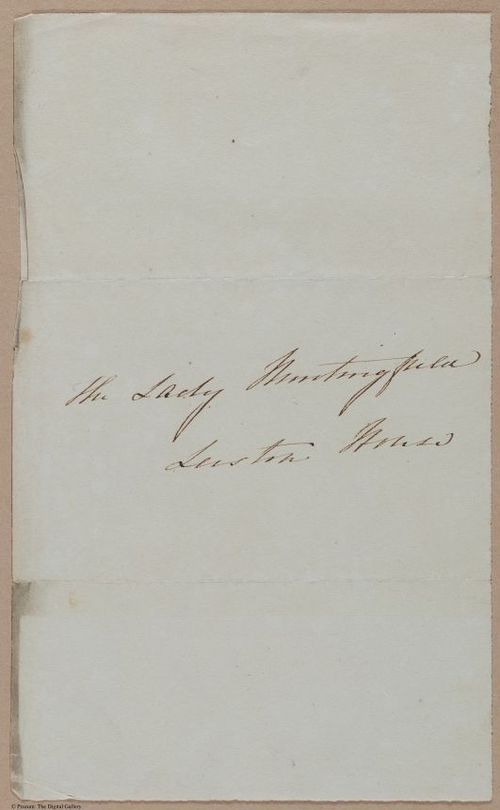 The Lady Huntingfield
Leiston House
© The Digital Gallery